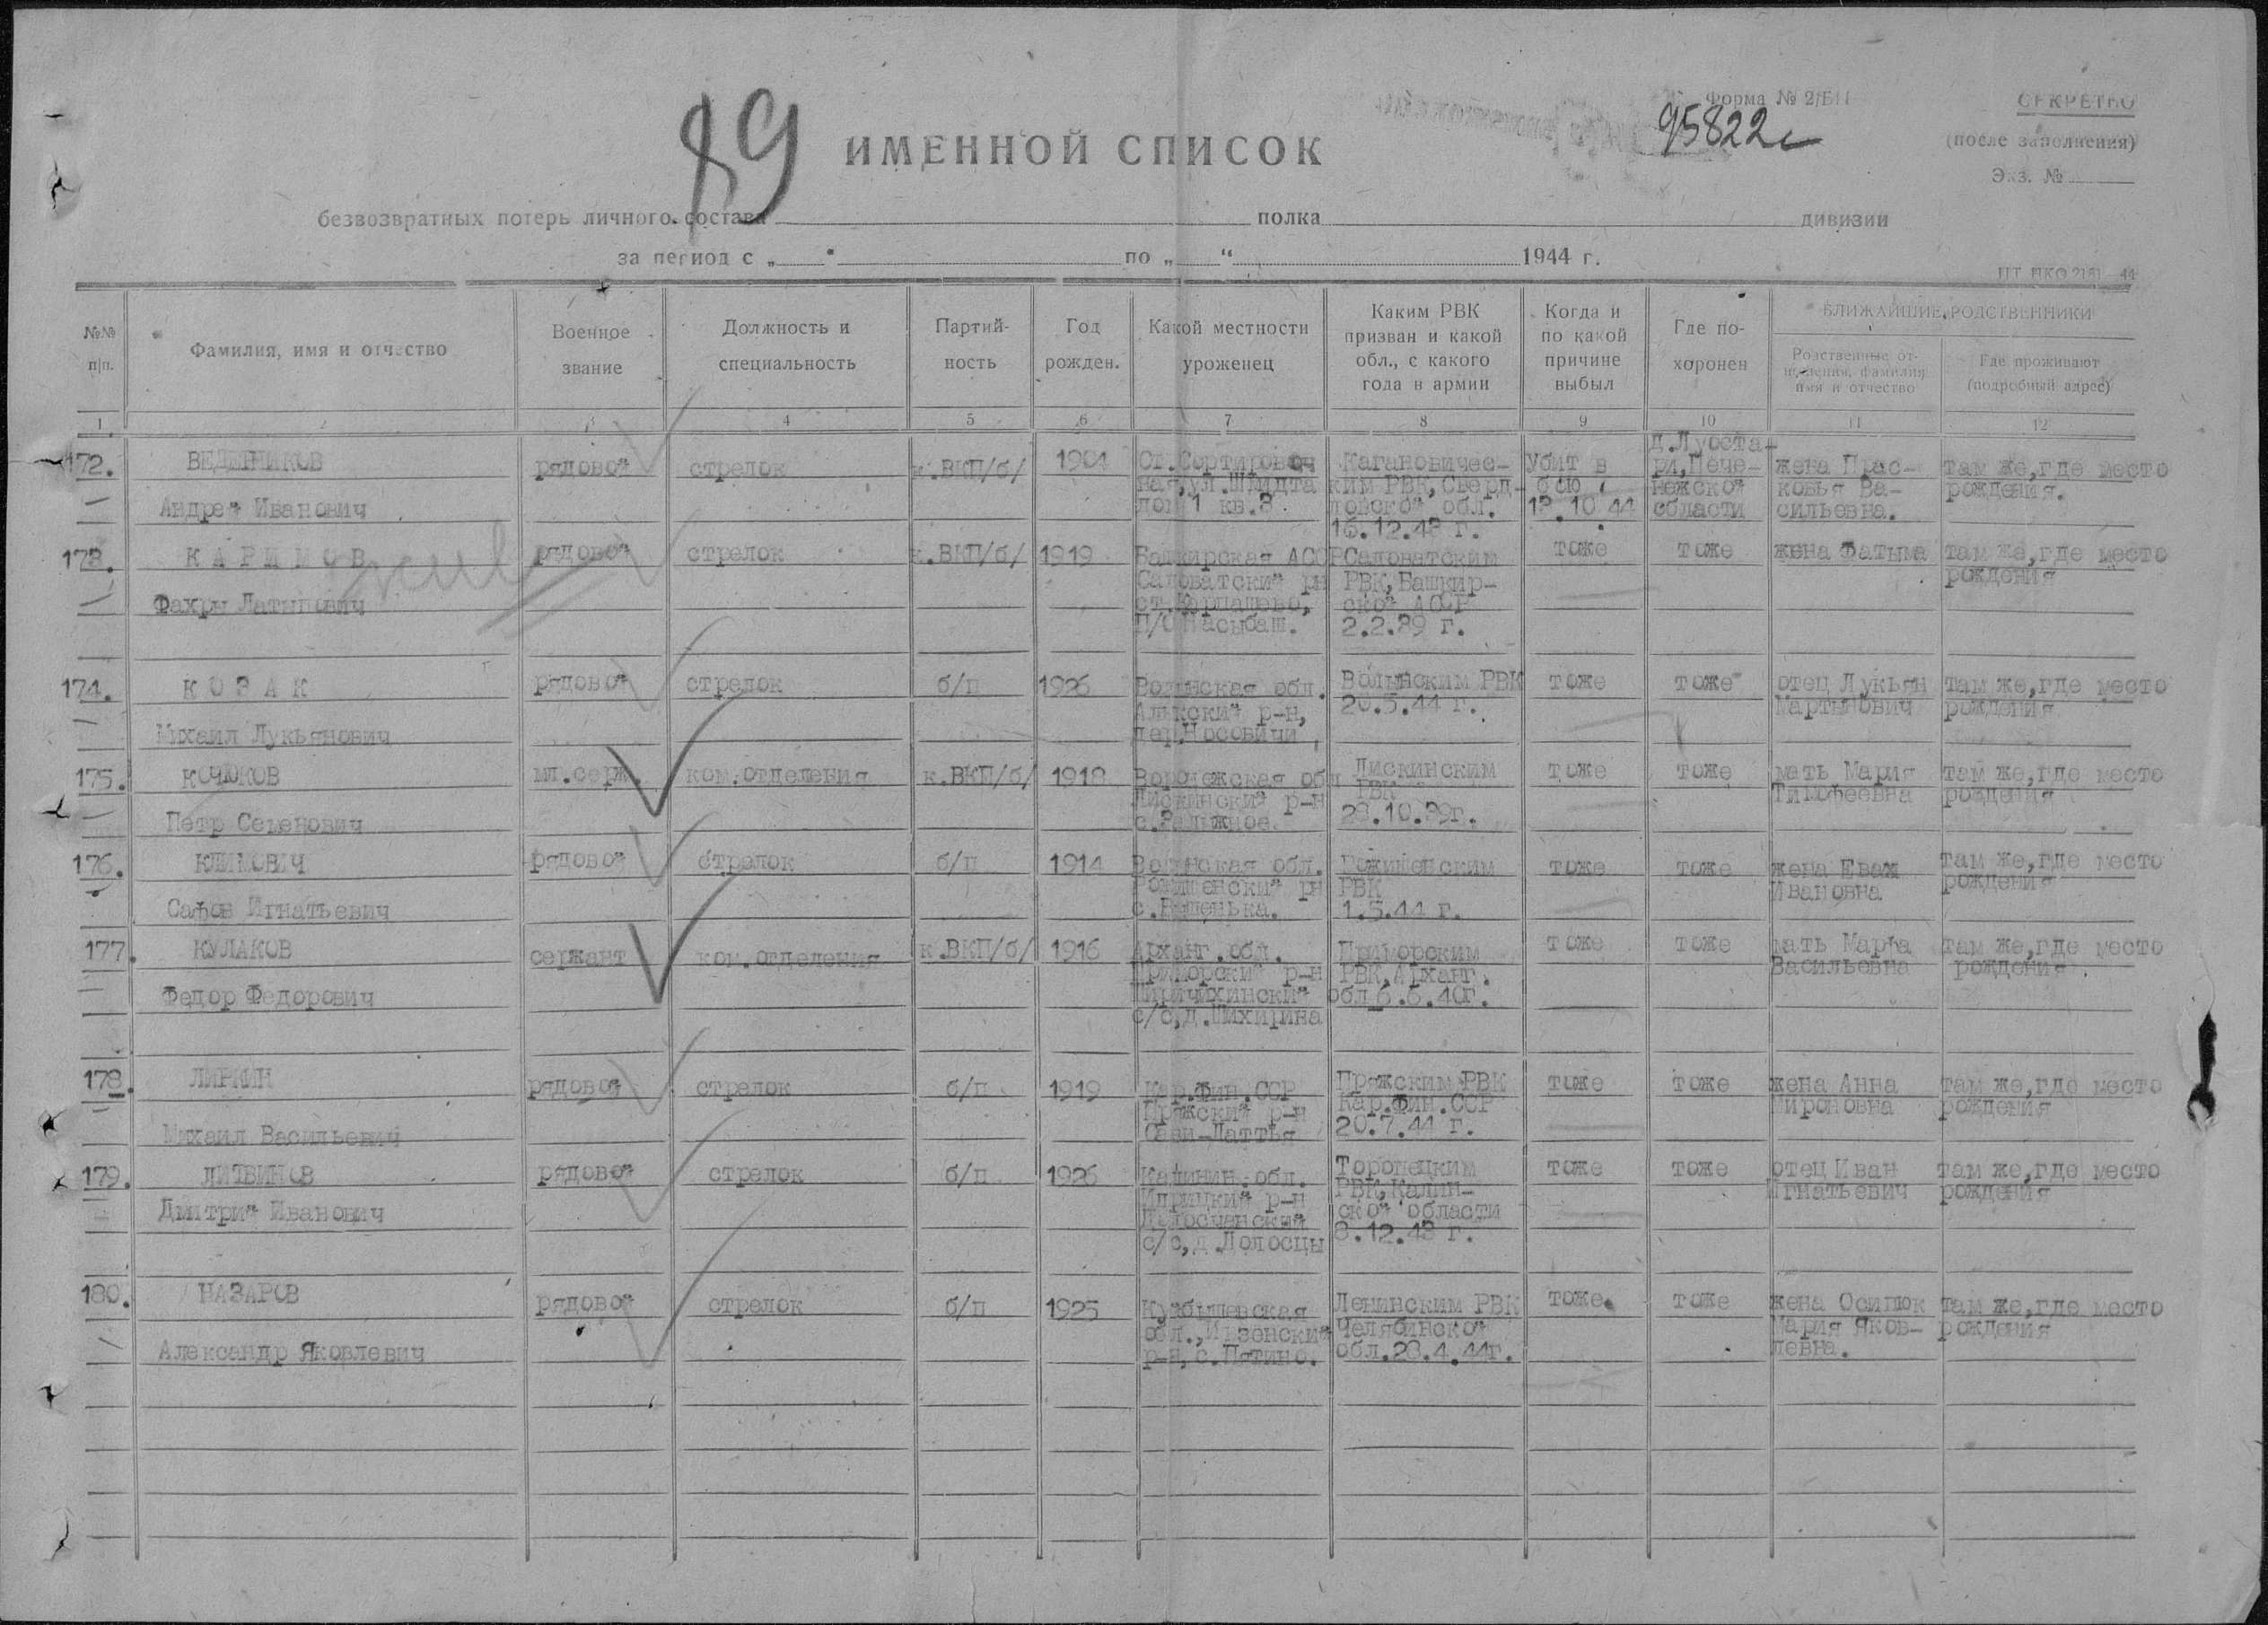 89
Форма № 2/БП
95822с
СЕКРЕТНО
(после заполнения)
Экз. №
ИМЕННОЙ СПИСОК
безвозвратных потерь личного состава полка дивизии
за период с „ “ по „ “ 1944 г.
№№ п|п.
Фамилия, имя и отчество
Военное звание
Должность и специальность
Партий-ность
Год рожден.
Какой местности уроженец
Каким РВК призван и какой обл., с какого года в армии
Когда и по какой причине выбыл
Где по-хоронен
БЛИЖАЙШИЕ РОДСТВЕННИКИ
Родственные от-ношения, фамилия имя и отчество
Где проживают (подробный адрес)
1 2 3 4 5 6 7 8 9 10 11 12
172. ВЕДЕРНИКОВ рядовой стрелок к.ВКП/б/ 1904 Ст.Сортировоч Кагановичес- Убит в д.Луоста-
ная,ул.Шмидта ким РВК,Сверд- бою ри,Пече- жена Прас- там же,где место
Андрей Иванович дом 1 кв.3. ловской обл. 13.10.44 нежской ковья Ва- рождения.
16.12.43 г. области сильевна.
173. КАРИМОВ рядовой стрелок к.ВКП/б/ 1919 Башкирская АССР Салаватским тоже тоже жена Фатыма там же,где место
жив
Салаватский рн РВК,Башкир- рождения
Фахры Латыпович ской АССР
П/О Насыбаш. 2.2.39 г.
174. КОЗАК рядовой стрелок б/п 1926 Волынская обл. Волынским РВК тоже тоже отец Лукьян там же,где место
р-н, 20.5.44 г. Мартынович рождения
Михаил Лукьянович дер.Носовичи
175. КОЧЮКОВ мл.серж. ком.отделения к.ВКП/б/ 1918 Воронежская обл Лискинским тоже тоже мать Мария там же,где место
Лискинский р-н РВК Тимофеевна рождения
Петр Семенович 28.10.39г.
176. КЛИМОВИЧ рядовой стрелок б/п 1914 Волынская обл. Рожищенским тоже тоже жена там же,где место
Рожищенский рн РВК Ивановна рождения
Сафон Игнатьевич 1.5.44 г.
177. КУЛАКОВ сержант ком.отделения к.ВКП/б/ 1916 Арханг.обл. Приморским тоже тоже мать Марфа там же,где место
Приморский р-н РВК,Арханг. Васильевна рождения.
Федор Федорович обл 6.6.40г.
с/с,д.Шихирина
178. ЛИРКИН рядовой стрелок б/п 1919 Кар.Фин.ССР Пряжским РВК тоже тоже жена Анна там же,где место
Пряжский р-н Кар.Фин.ССР Мироновна рождения
Михаил Васильевич 20.7.44 г.
179. ЛИТВИНОВ рядовой стрелок б/п 1926 Калинин.обл. Торопецким тоже тоже отец Иван там же,где место
Идрицкий р-н РВК,Калин- Игнатьевич рождения
Дмитрий Иванович ской области
с/с,д.Долосцы 8.12.43 г.
180. НАЗАРОВ рядовой стрелок б/п 1925 Куйбышевская Ленинским РВК тоже тоже жена Осипюк там же,где место
обл.,Инзенский Челябинской Мария Яков- рождения
Александр Яковлевич р-н, с.Пятино. обл.28.4.44г. левна.